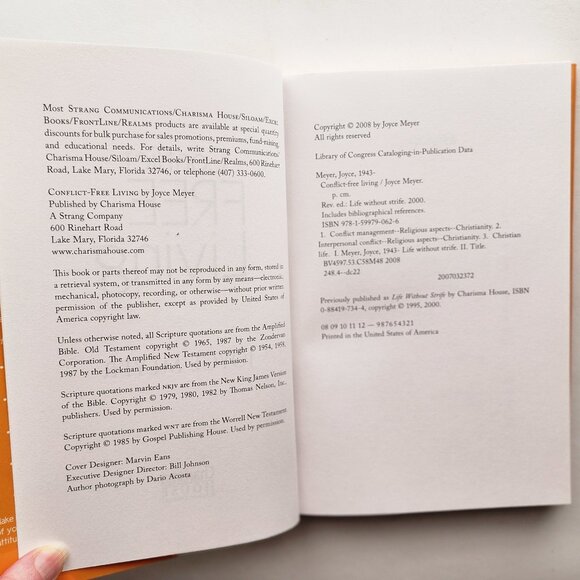 Most Strang Communications/Charisma House/Siloam/Excel
Books/FrontLine/Realms products are available at special quantity
discounts for bulk purchase for sales promotions, premiums, fund-raising,
and educational needs. For details, write Strang Communications/
Charisma House/Siloam/Excel Books/FrontLine/Realms, 600 Rinehart
Road, Lake Mary, Florida 32746, or telephone (407) 333-0600.
Conflict-Free Living by Joyce Meyer
Published by Charisma House
A Strang Company
600 Rinehart Road
Lake Mary, Florida 32746
www.charismahouse.com
This book or parts thereof may not be reproduced in any form, stored in
a retrieval system, or transmitted in any form by any means—electronic,
mechanical, photocopy, recording, or otherwise—without prior written
permission of the publisher, except as provided by United States of
America copyright law.
Unless otherwise noted, all Scripture quotations are from the Amplified
Bible. Old Testament copyright © 1965, 1987 by the Zondervan
Corporation. The Amplified New Testament copyright © 1954, 1958,
1987 by the Lockman Foundation. Used by permission.
Scripture quotations marked NKJV are from the New King James Version
of the Bible. Copyright © 1979, 1980, 1982 by Thomas Nelson, Inc.,
publishers. Used by permission.
Scripture quotations marked WNT are from the Worrell New Testament
Copyright © 1985 by Gospel Publishing House. Used by permission.
Cover Designer: Marvin Eans
Executive Designer Director: Bill Johnson
Author photograph by Dario Acosta
Copyright © 2008 by Joyce Meyer
All rights reserved
Library of Congress Cataloging-in-Publication Data
Meyer, Joyce, 1943-
Conflict-free living / Joyce Meyer.
p. cm.
Rev. ed.: Life without strife. 2000.
Includes bibliographical references.
ISBN 978-1-59979-062-6
1. Conflict management--Religious aspects--Christianity. 2.
Interpersonal conflict--Religious aspects--Christianity. 3. Christian
life. I. Meyer, Joyce, 1943- Life without strife. II. Title.
BV4597.53.C58M48 2008
248.4--dc22
2007032372
Previously published as Life Without Strife by Charisma House, ISBN
0-88419-734-4, copyright © 1995, 2000.
08 09 10 11 12 — 987654321
Printed in the United States of America